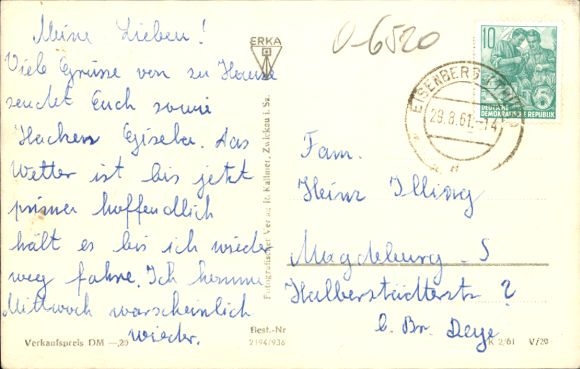 Meine Lieben!
Viele Grüsse von zu Hause
sendet Euch sowie
Hacken Gisela. Das
Wetter ist bis jetzt
prima hoffendlich
hält es bis ich wieder
weg fahre. Ich komme
Mittwoch warscheinlich
wieder.
Verkaufspreis DM —,20
ERKA
Fotografischer Verlag R. Kallmer, Zwickau i. Sa.
Best.-Nr
2194/936
0-6520
EISENBERG
29.8.61.-14
10
DEUTSCHE
DEMOKRATISCHE REPUBLIK
Fam.
Heinz Illing
Magdeburg-S
Halberstädterstr 2
b. Br. Deye
K 2/61 V/20